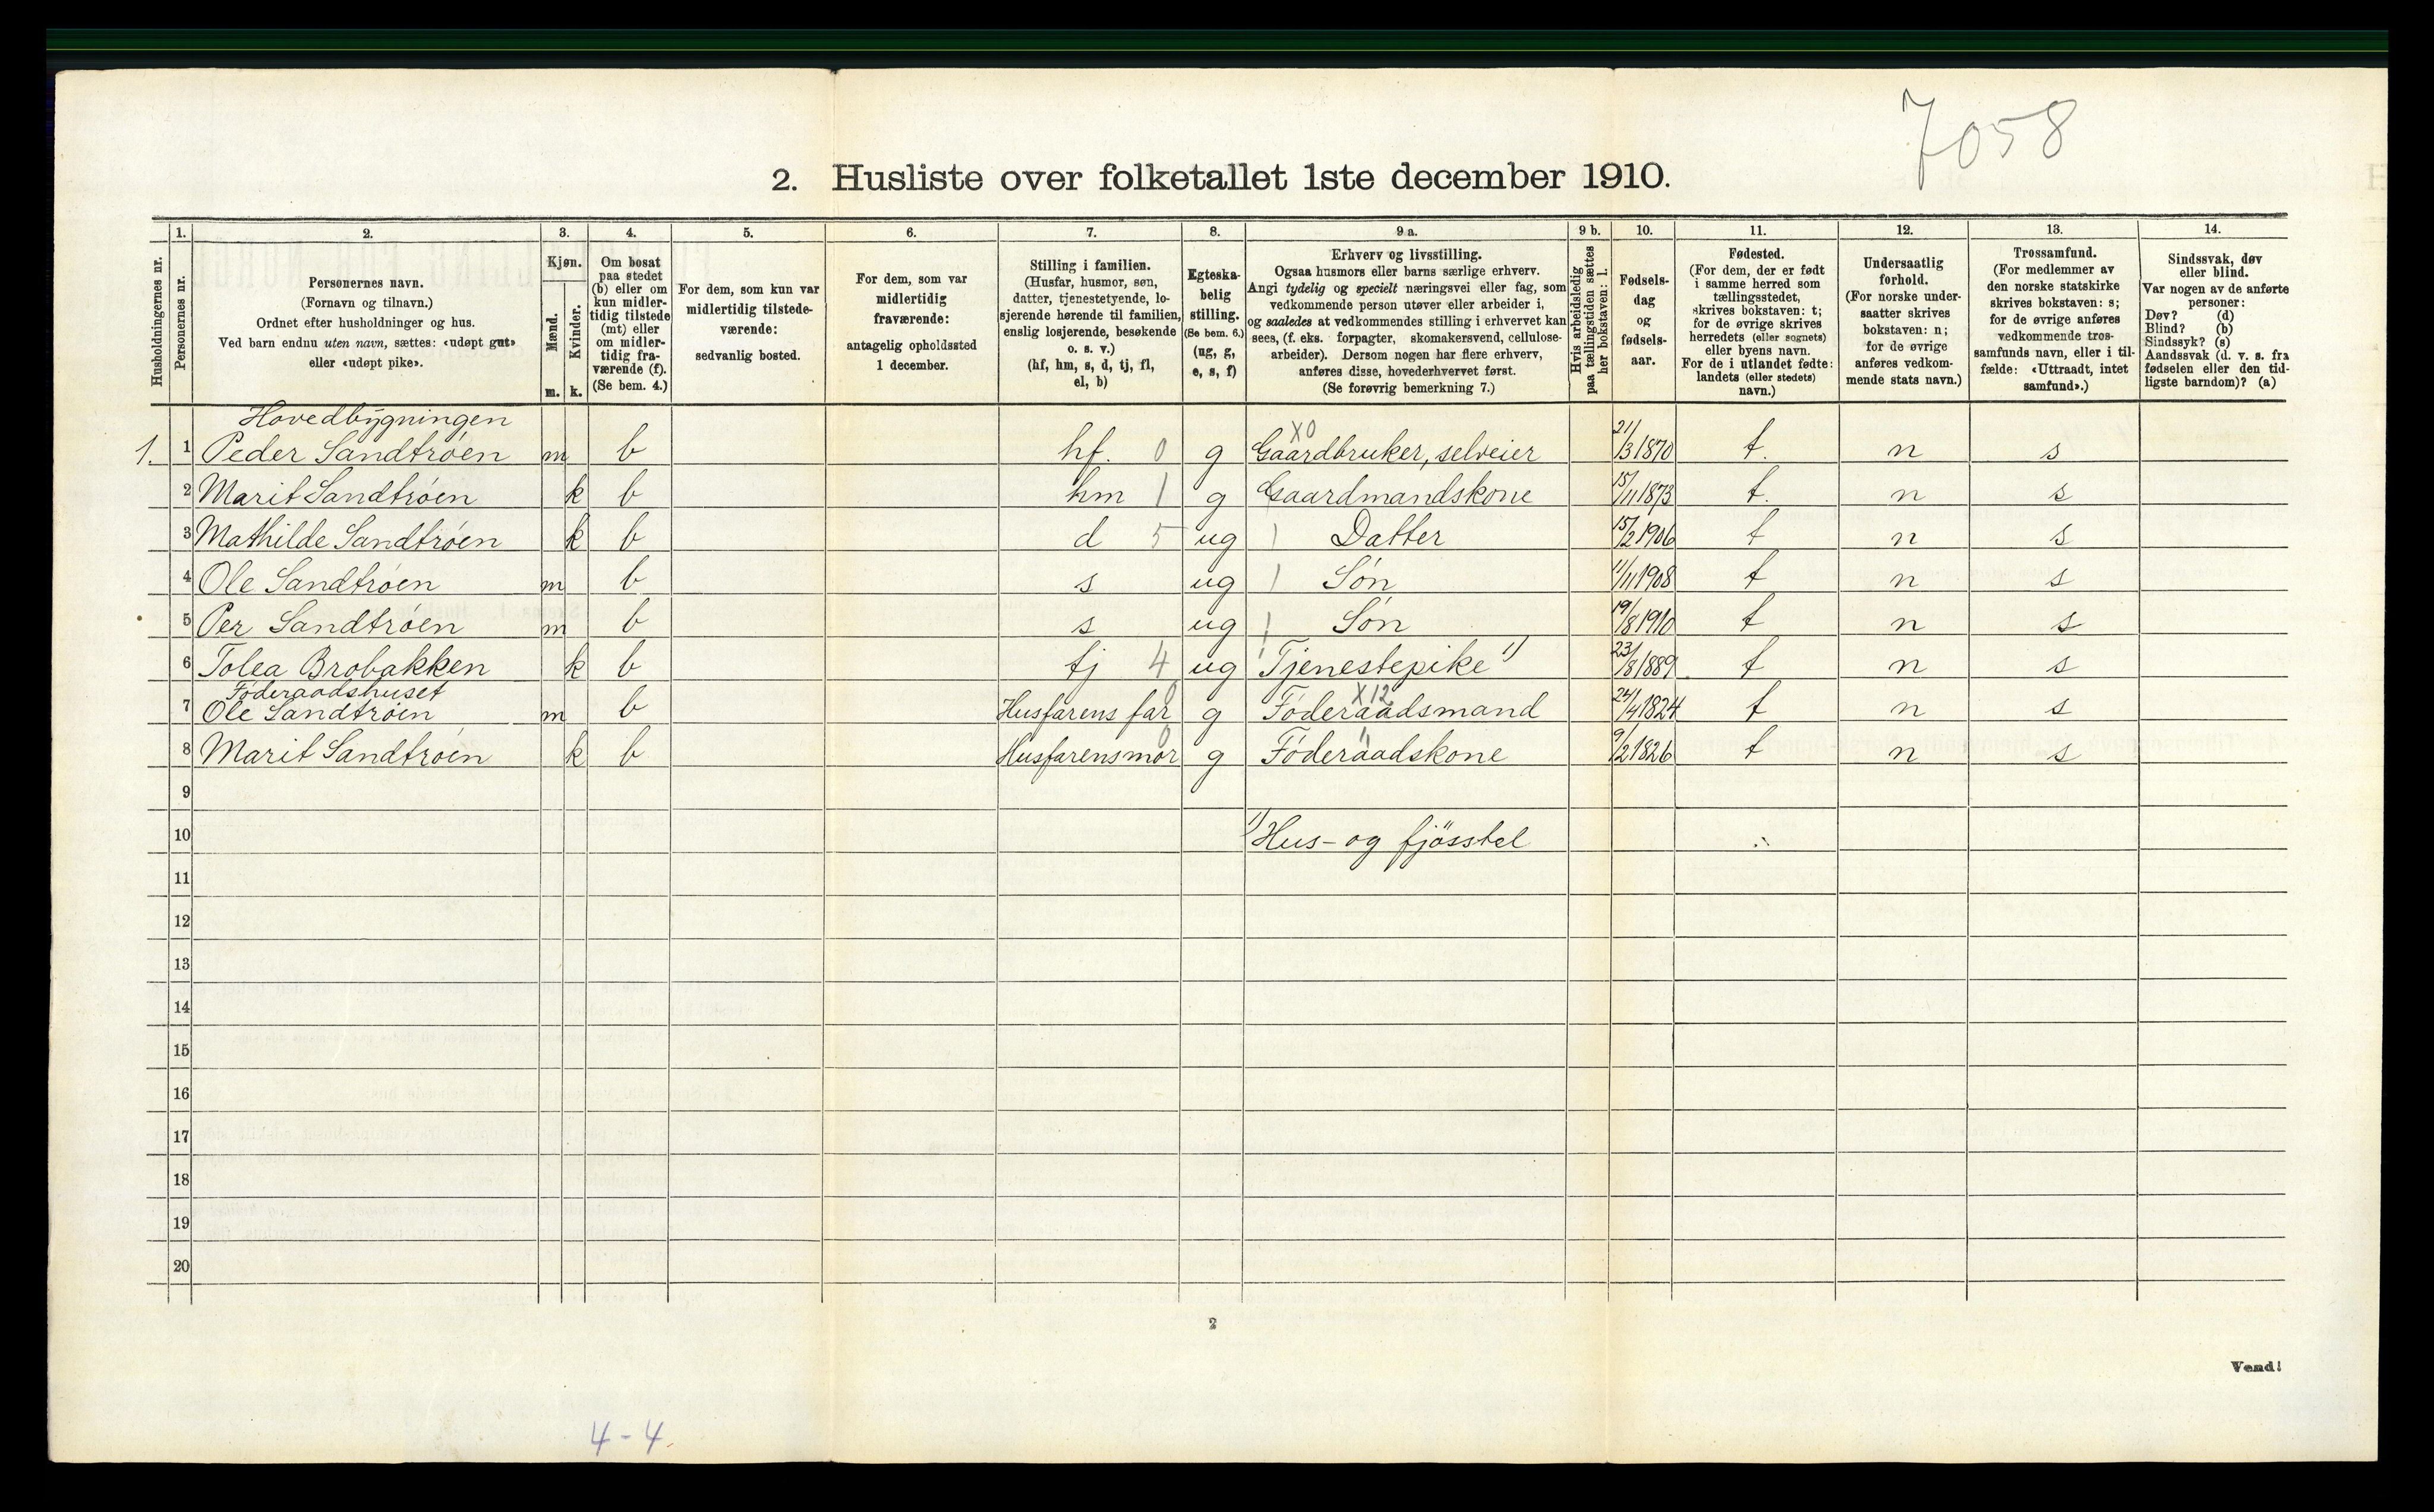 7058
2. Husliste over folketallet 1ste december 1910.
Husholdningernes nr.
1. Personernes nr.
2. Personernes navn. (Fornavn og tilnavn.) Ordnet efter husholdninger og hus. Ved barn endnu uten navn, sættes: «udøpt gut» eller «udøpt pike».
3. Kjøn. Mænd. m. Kvinder. k.
4. Om bosat paa stedet (b) eller om kun midlertidig tilstede (mt) eller om midlertidig fraværende (f). (Se bem. 4.)
5. For dem, som kun var midlertidig tilstedeværende: sedvanlig bosted.
6. For dem, som var midlertidig fraværende: antagelig opholdssted 1 december.
7. Stilling i familien. (Husfar, husmor, søn, datter, tjenestetyende, losjerende hørende til familien, enslig losjerende, besøkende o. s. v.) (hf, hm, s, d, tj, fl, el, b)
8. Egteskabelig stilling. (Se bem. 6.) (ug, g, e, s, f)
9 a. Erhverv og livsstilling. Ogsaa husmors eller barns særlige erhverv. Angi tydelig og specielt næringsvei eller fag, som vedkommende person utøver eller arbeider i, og saaledes at vedkommendes stilling i erhvervet kan sees, (f. eks. forpagter, skomakersvend, cellulosearbeider). Dersom nogen har flere erhverv, anføres disse, hovederhvervet først. (Se forøvrig bemerkning 7.)
9 b. Hvis arbeidsledig paa tællingstiden sættes her bokstaven: l.
10. Fødselsdag og fødselsaar.
11. Fødested. (For dem, der er født i samme herred som tællingsstedet, skrives bokstaven: t; for de øvrige skrives herredets (eller sognets) eller byens navn. For de i utlandet fødte: landets (eller stedets) navn.)
12. Undersaatlig forhold. (For norske undersaatter skrives bokstaven: n; for de øvrige anføres vedkommende stats navn.)
13. Trossamfund. (For medlemmer av den norske statskirke skrives bokstaven: s; for de øvrige anføres vedkommende trossamfunds navn, eller i tilfælde: «Uttraadt, intet samfund».)
14. Sindssvak, døv eller blind. Var nogen av de anførte personer: Døv? (d) Blind? (b) Sindssyk? (s) Aandssvak (d. v. s. fra fødselen eller den tidligste barndom)? (a)
Hovedbygningen X0
1. 1 Peder Sandtrøen m b hf. 0 g Gaardbruker, selveier 21/3 1870 t. n s
2 Marit Sandtrøen k b hm 1 g Gaardmandskone 15/11 1873 t. n s
3 Mathilde Sandtrøen k b d 5 ug Datter 15/2 1906 t n s
4 Ole Sandtrøen m b s ug Søn 11/11 1908 t n s
5 Per Sandtrøen m b s ug Søn 19/8 1910 t n s
6 Tolea Brobakken k b tj 4 ug Tjenestepike 1) 23/8 1889 t n s
Føderaadshuset X12
7 Ole Sandtrøen m b Husfarens far 0 g Føderaadsmand 24/4 1824 t n s
8 Marit Sandtrøen k b Husfarens mor 0 g Føderaadskone 9/2 1826 t n s
9
10 1) Hus- og fjösstel
11
12
13
14
15
16
17
18
19
20
2
Vend!
4-4